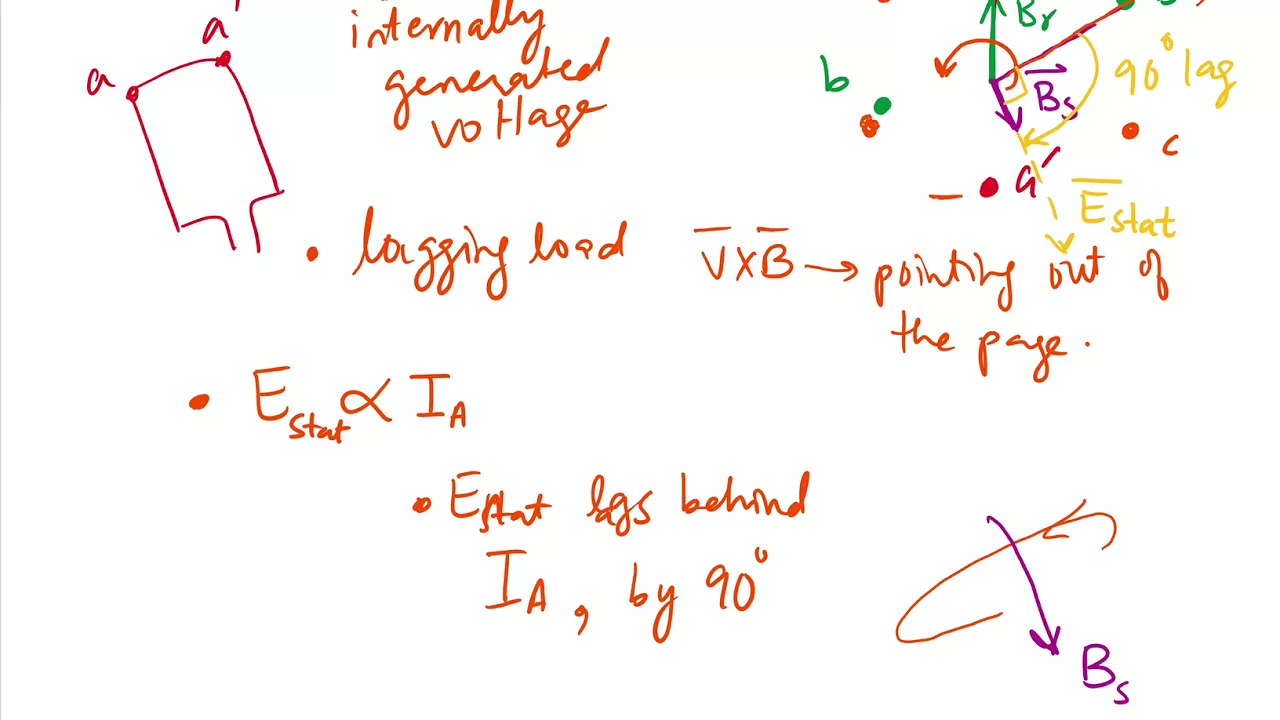 a
a'
internally
generated
voltage
Br
b
Bs
90° lag
c
a'
Estat
• lagging load
V X B → pointing out of
the page.
• Estat ∝ IA
• Estat lags behind
IA , by 90°
Bs